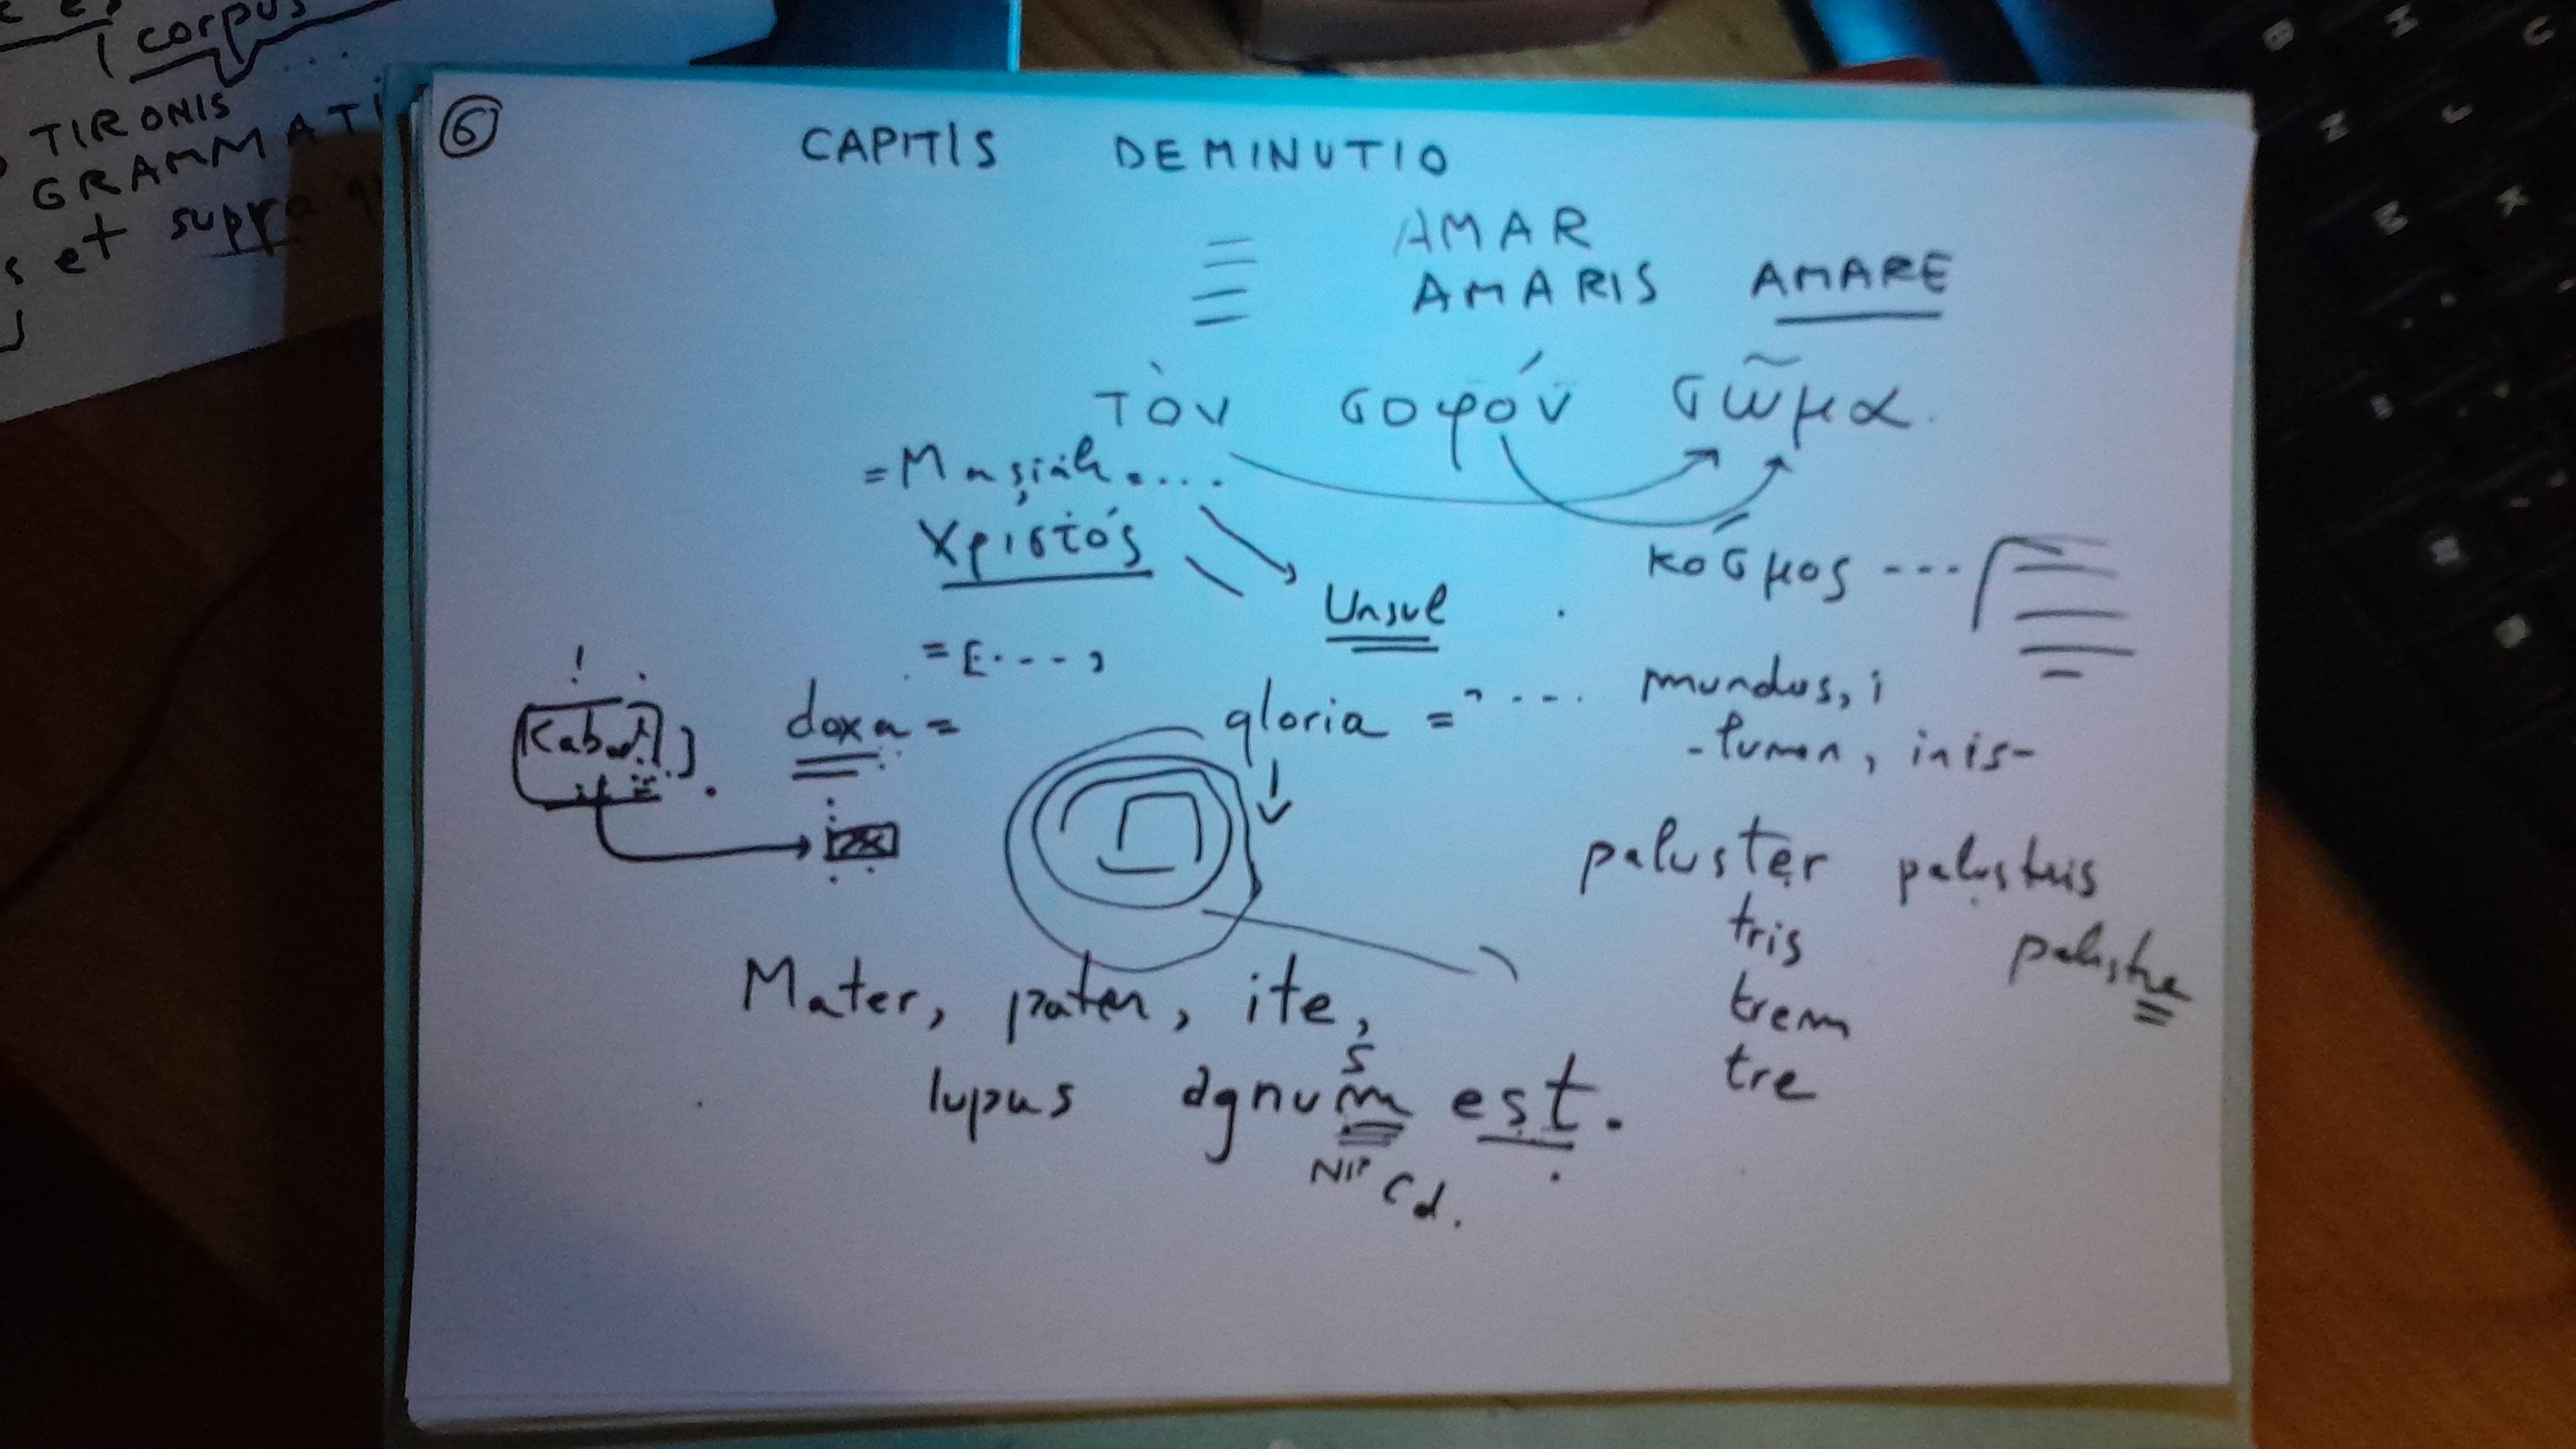 corpus
TIRONIS
GRAMMATI
s et supra
6
CAPITIS DEMINUTIO
AMAR
AMARIS AMARE
τὸν σοφόν σῶμα.
= Maşiah....
Χριστός
κόσμος ---
Unsul
= [. - - -,
doxa =
gloria = " - - .
mundus, i
- lumen, inis -
paluster palustris
tris palustre
trem
tre
Mater, pater, ite,
s
lupus agnum est.
Cd.